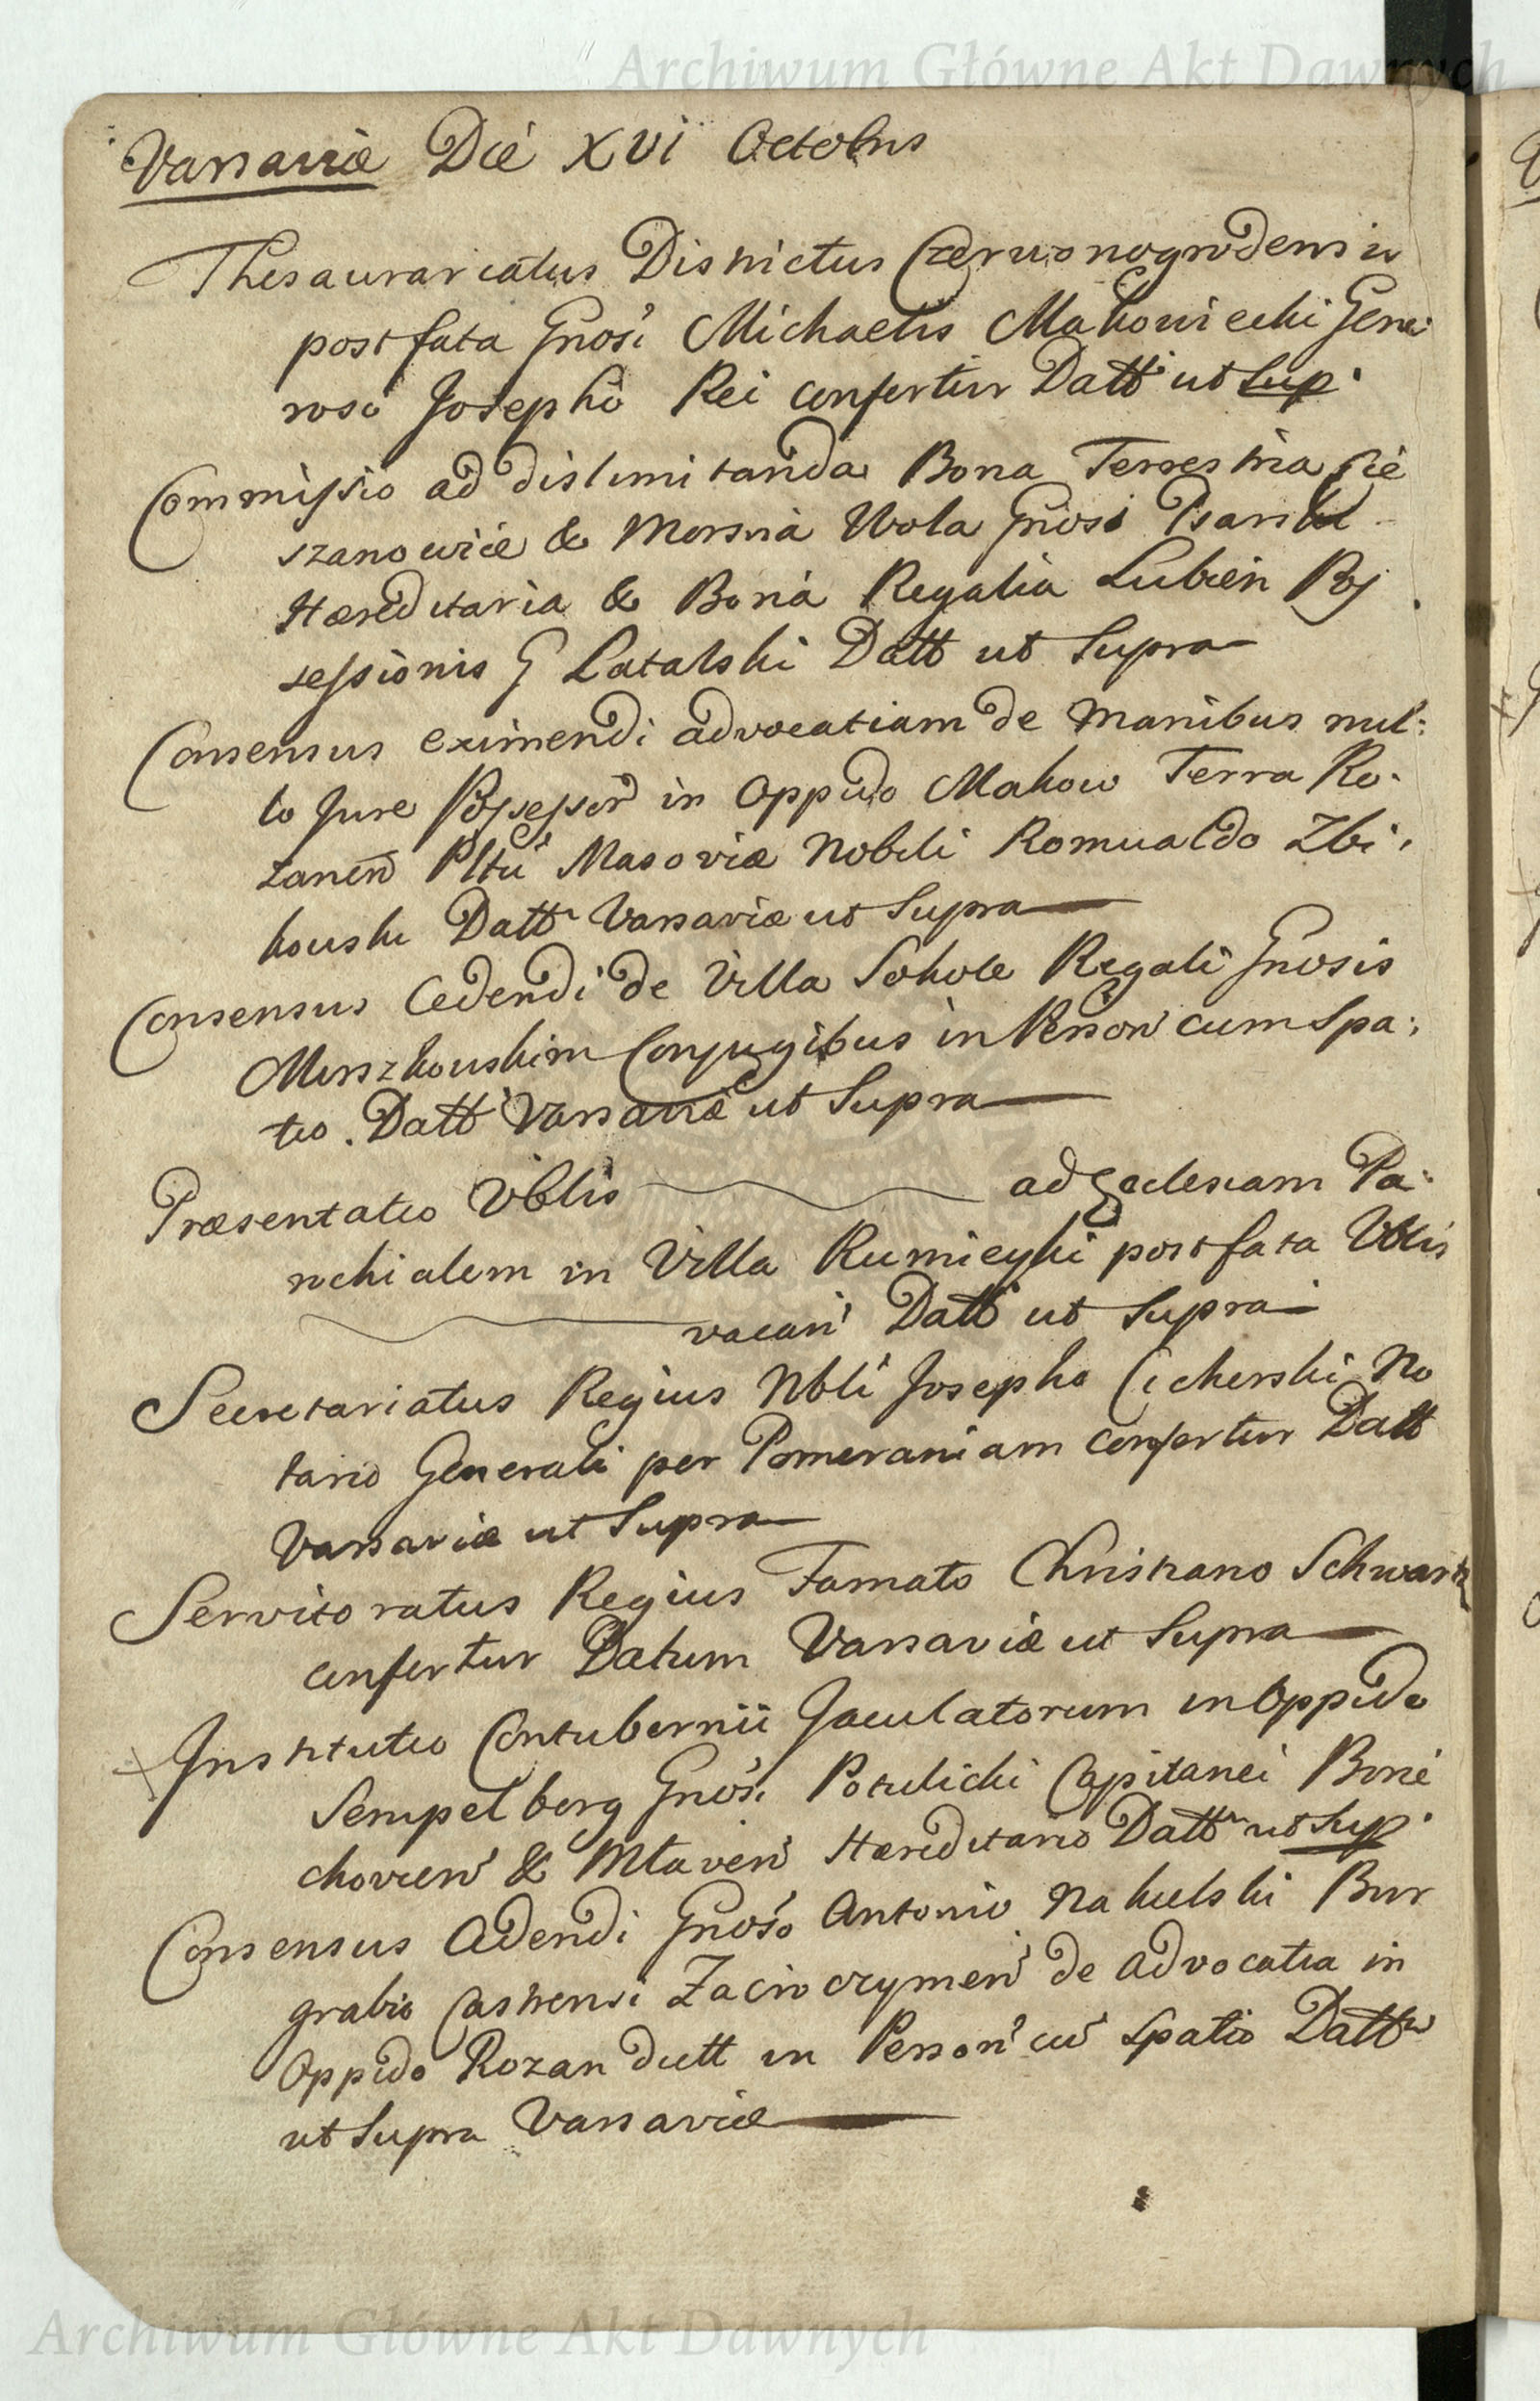 Archiwum Główne Akt Dawnych
Varsaviæ Die XVI Octobris
Thesaurariatus Districtus Czerwonogrodensis
post fata Gnosi Michaelis Makowiecki Gene
roso Josepho Rei confertur Datt ut Sup
Commissio ad dislimitanda Bona Terrestria Cie
szanowice & Morsna Wola Gnosi Psarski
Hæreditaria & Bona Regalia Lubien Pos
sessionis G Latalski Datt ut Supra
Consensus eximendi advocatiam de manibus nul:
lo Jure Possessor in Oppido Makow Terra Ro:
zanen Pltu Masoviæ Nobili Romualdo Zbi:
kouski Datt Varsaviæ ut Supra
Consensus Cedendi de Villa Sokole Regali Gnosis
Conjugibus in Person cum Spa:
tio. Datt Varsaviæ ut Supra
Præsentatio Vblis ad Ecclesiam Pa:
rochialem in Villa post fata Vblis
vacan Datt ut Supra
Secretariatus Regius Nbli Josepho Cicherski No
tario Generali per Pomeraniam confertur Datt
Varsaviæ ut Supra
Servitoratus Regius Famato Christiano Schwartz
confertur Datum Varsaviæ ut Supra
Institutio Contubernii Jaculatorum in Oppido
Sempelborg Gnosi Potulicki Capitanei Borze
chovien & Mlaven Hæreditario Datt ut Sup
Consensus Cedendi Gnoso Antonio Nakielski Bur
grabio Castrensi Zacroczymen de advocatia in
Oppido Rozan dictt in Person cu Spatio Datt
ut Supra Varsaviæ
Archiwum Główne Akt Dawnych